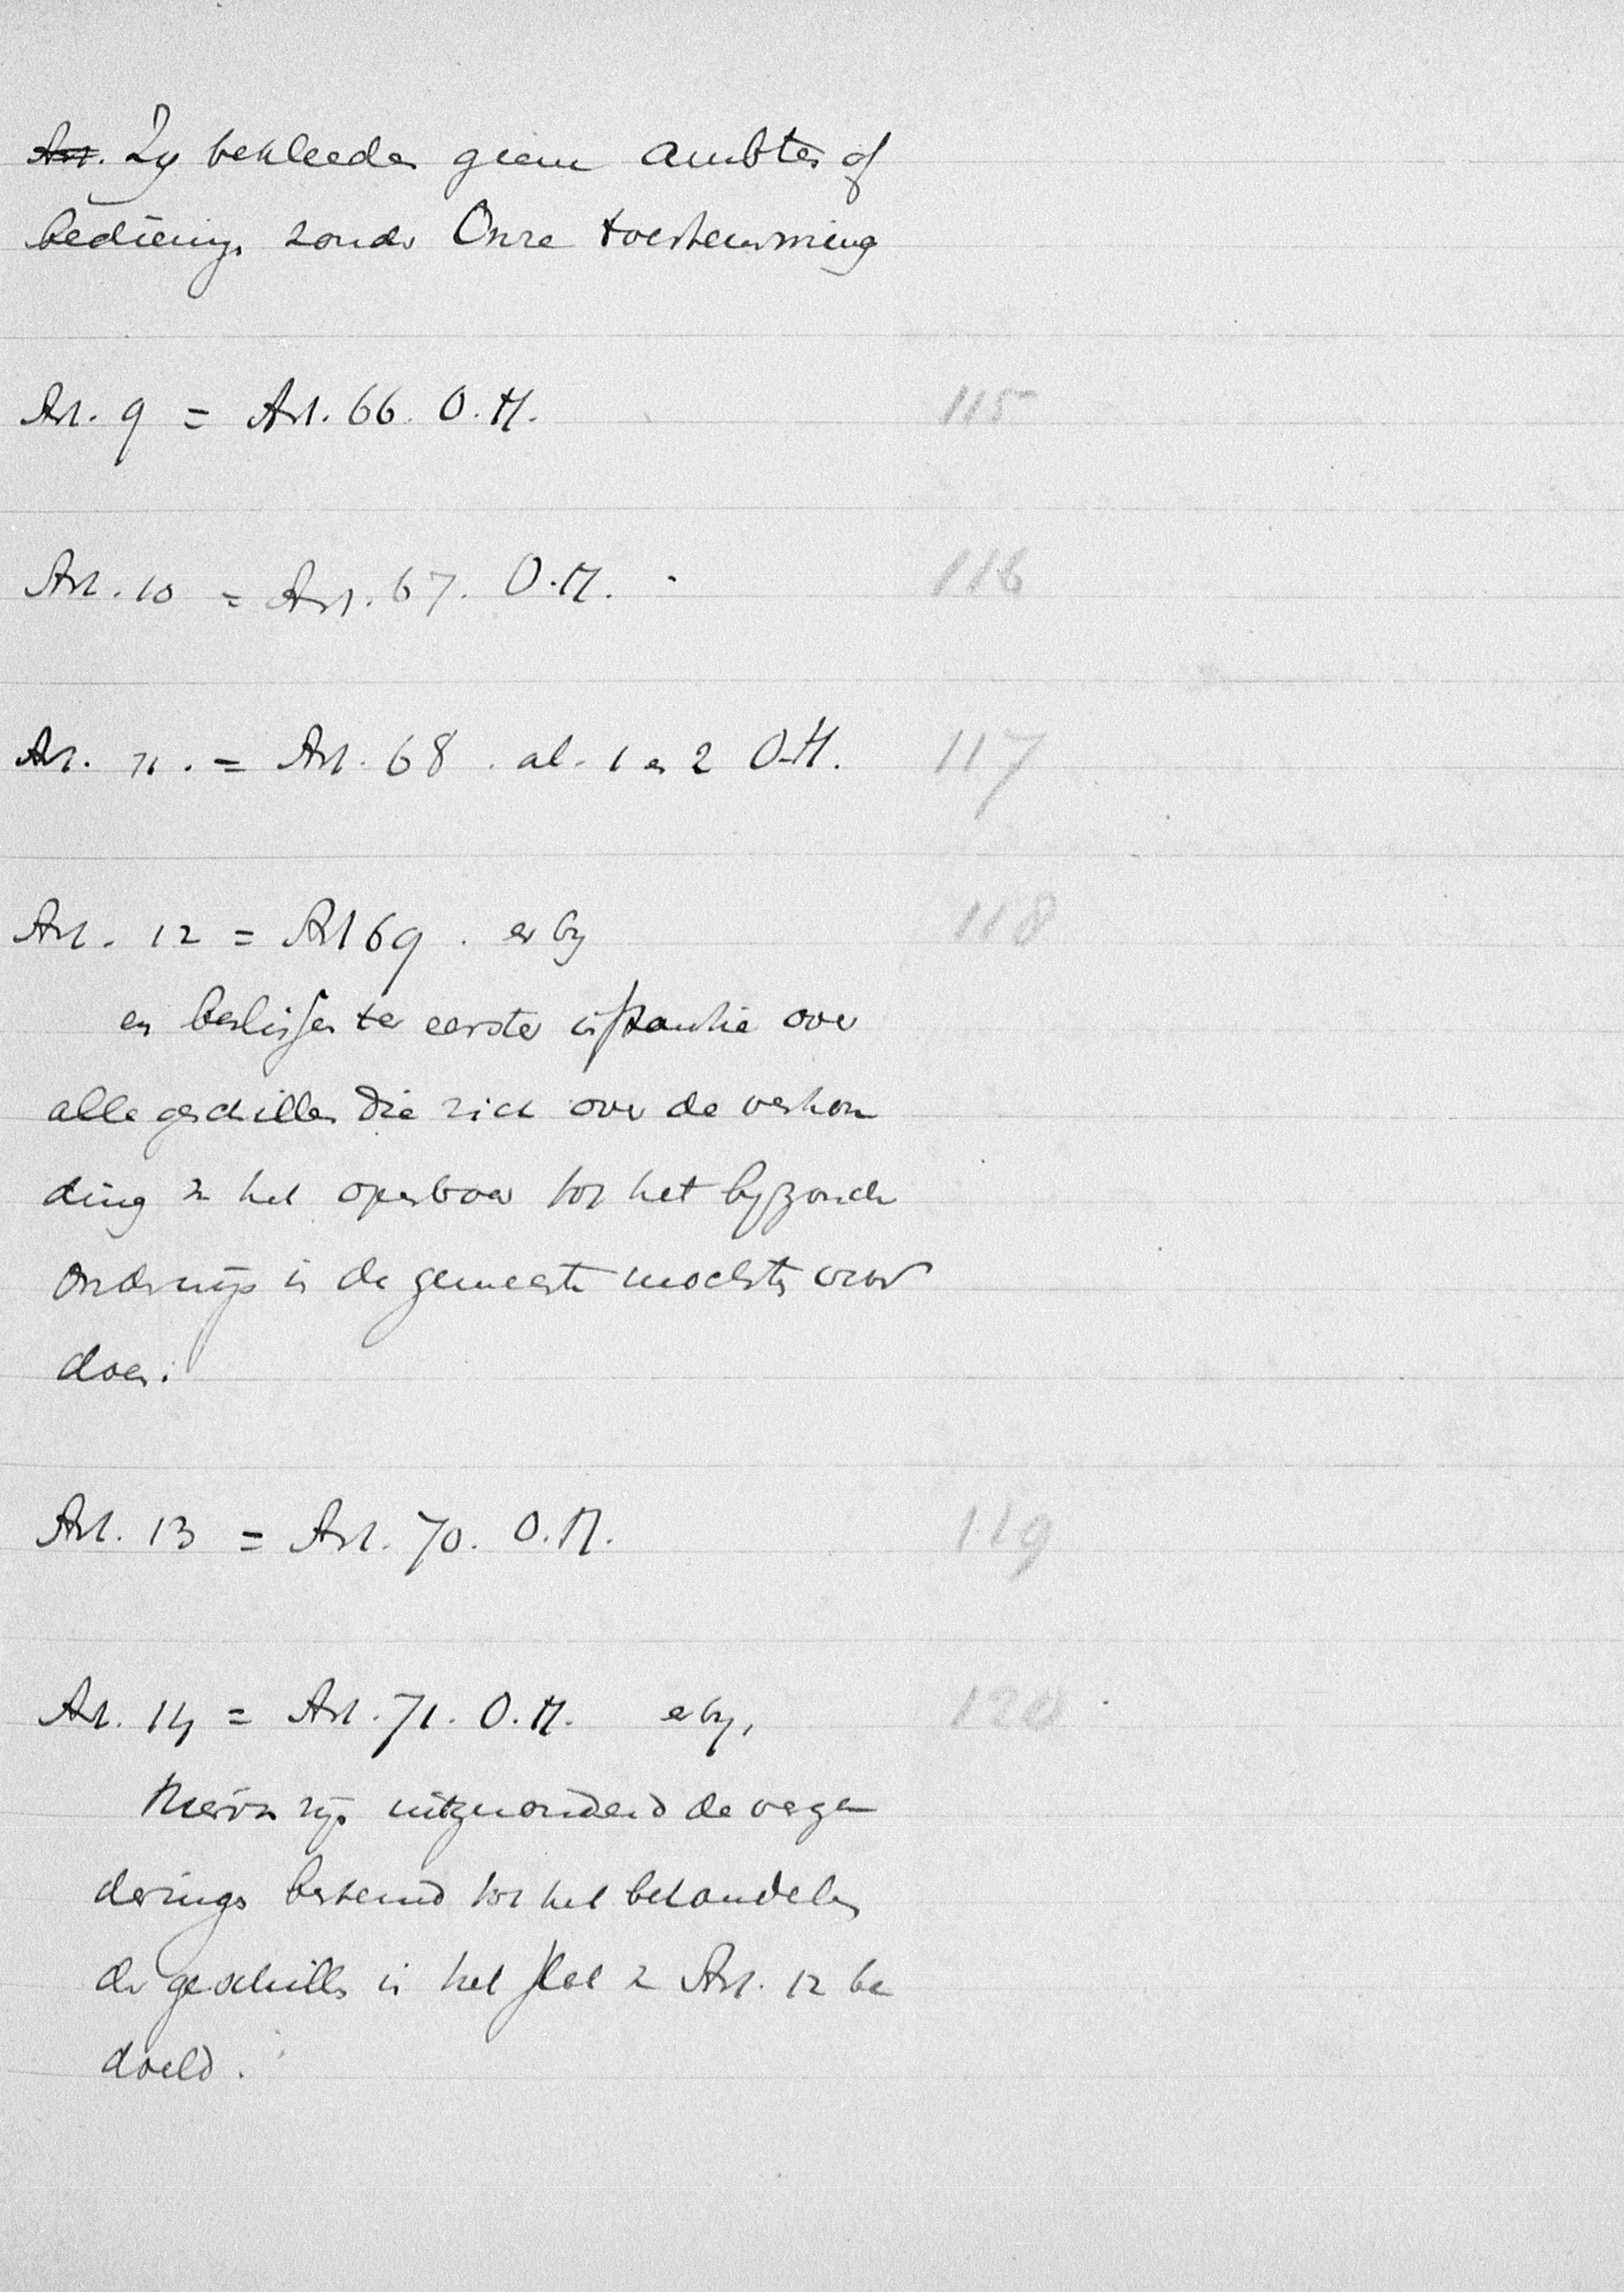 Art. Zij bekleeden geen ambten of
bedieningen zonder Onze toestemming
Art. 9 = Art. 66. O.M. 115
Art. 10 = Art. 67. O.M. 116
Art. 11. = Art. 68. al. 1 en 2 O.M. 117
Art. 12 = Art 69. en by 118
en beslissen ter eerster instantie over
alle geschillen die zich over de verhou
ding van het openbaar tot het byzonder
Onderwijs in de gemeente mochten voor
doen.
Art. 13 = Art. 70. O.M. 119
Art. 14 = Art. 71. O.M. en by, 120
Hiervan zijn uitgezonderd de verga
deringen bestemd tot het behandelen
der geschillen in het slot van Art. 12 be
doeld.